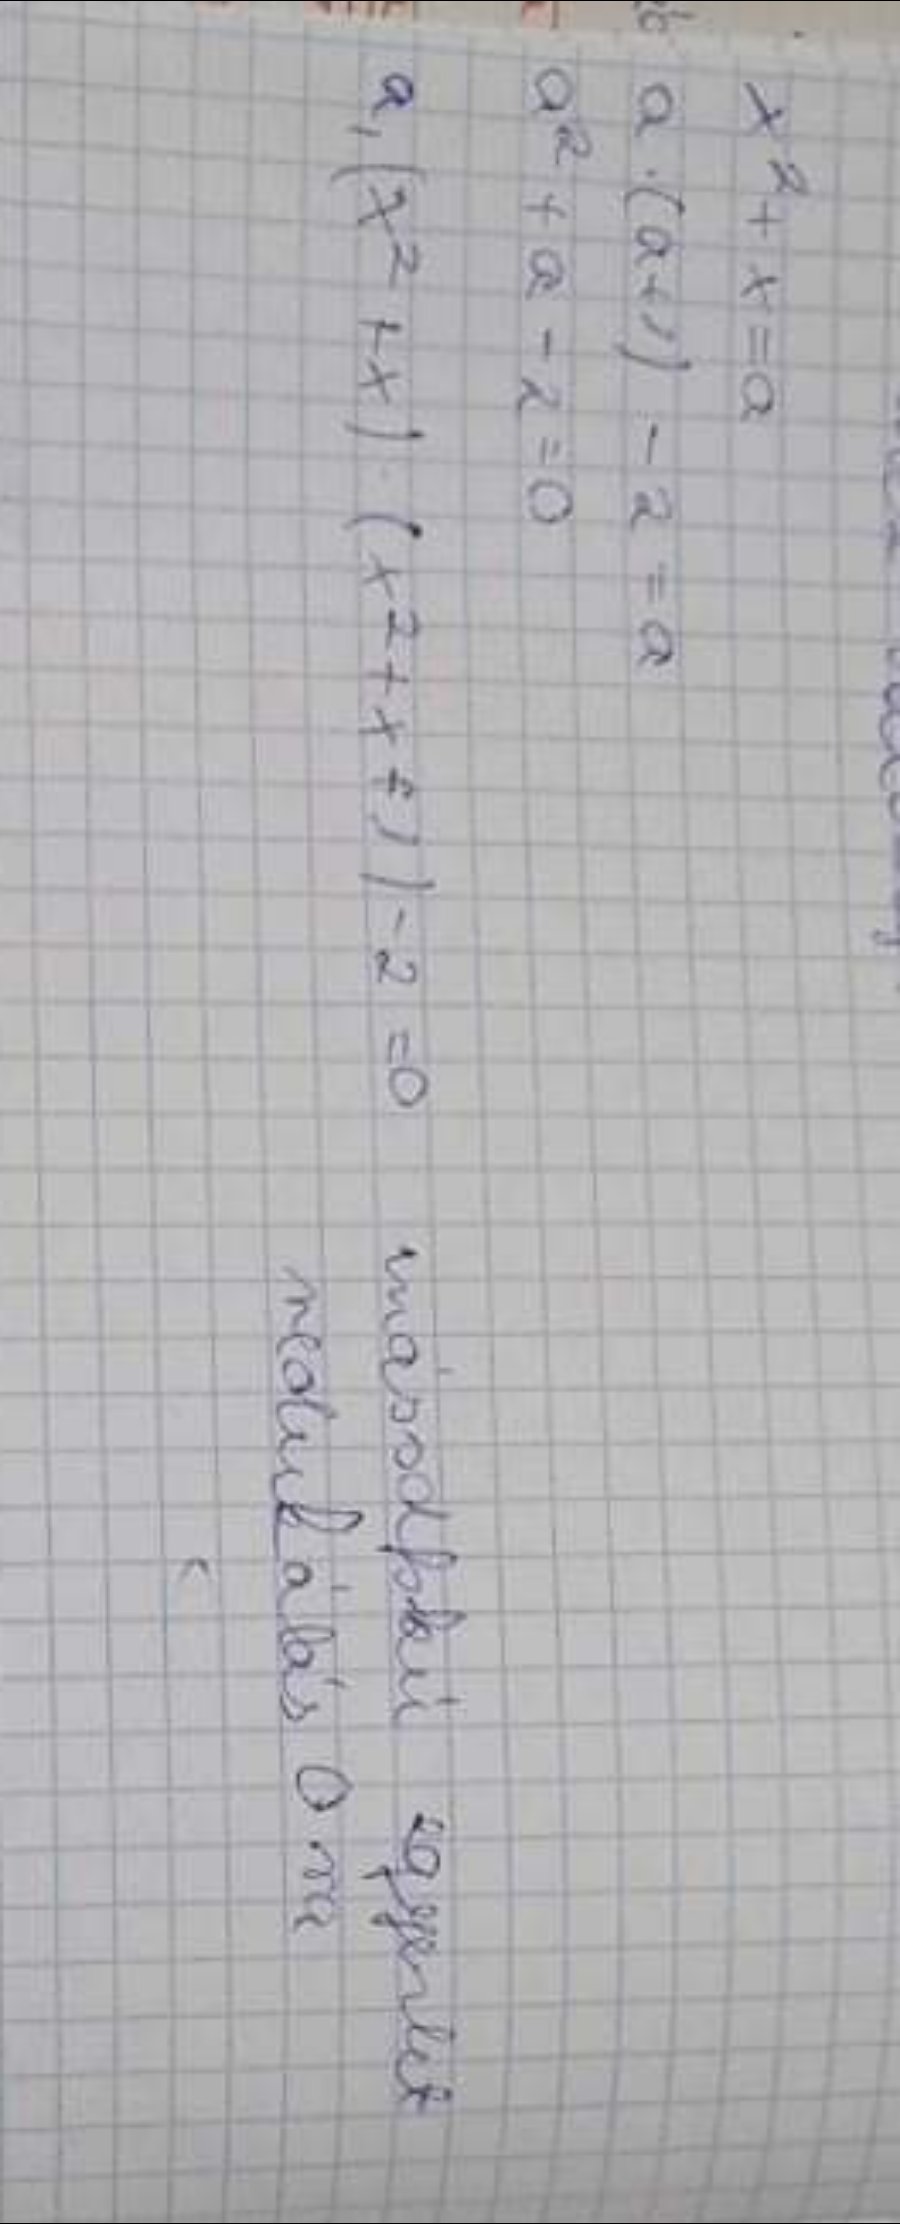 x² + x = a
a · (a+1) - 2 = a
a² + a - 2 = 0
a, (x² + x) · (x² + x + 1) - 2 = 0 másodfokú egyenlet
redukálás 0 ra